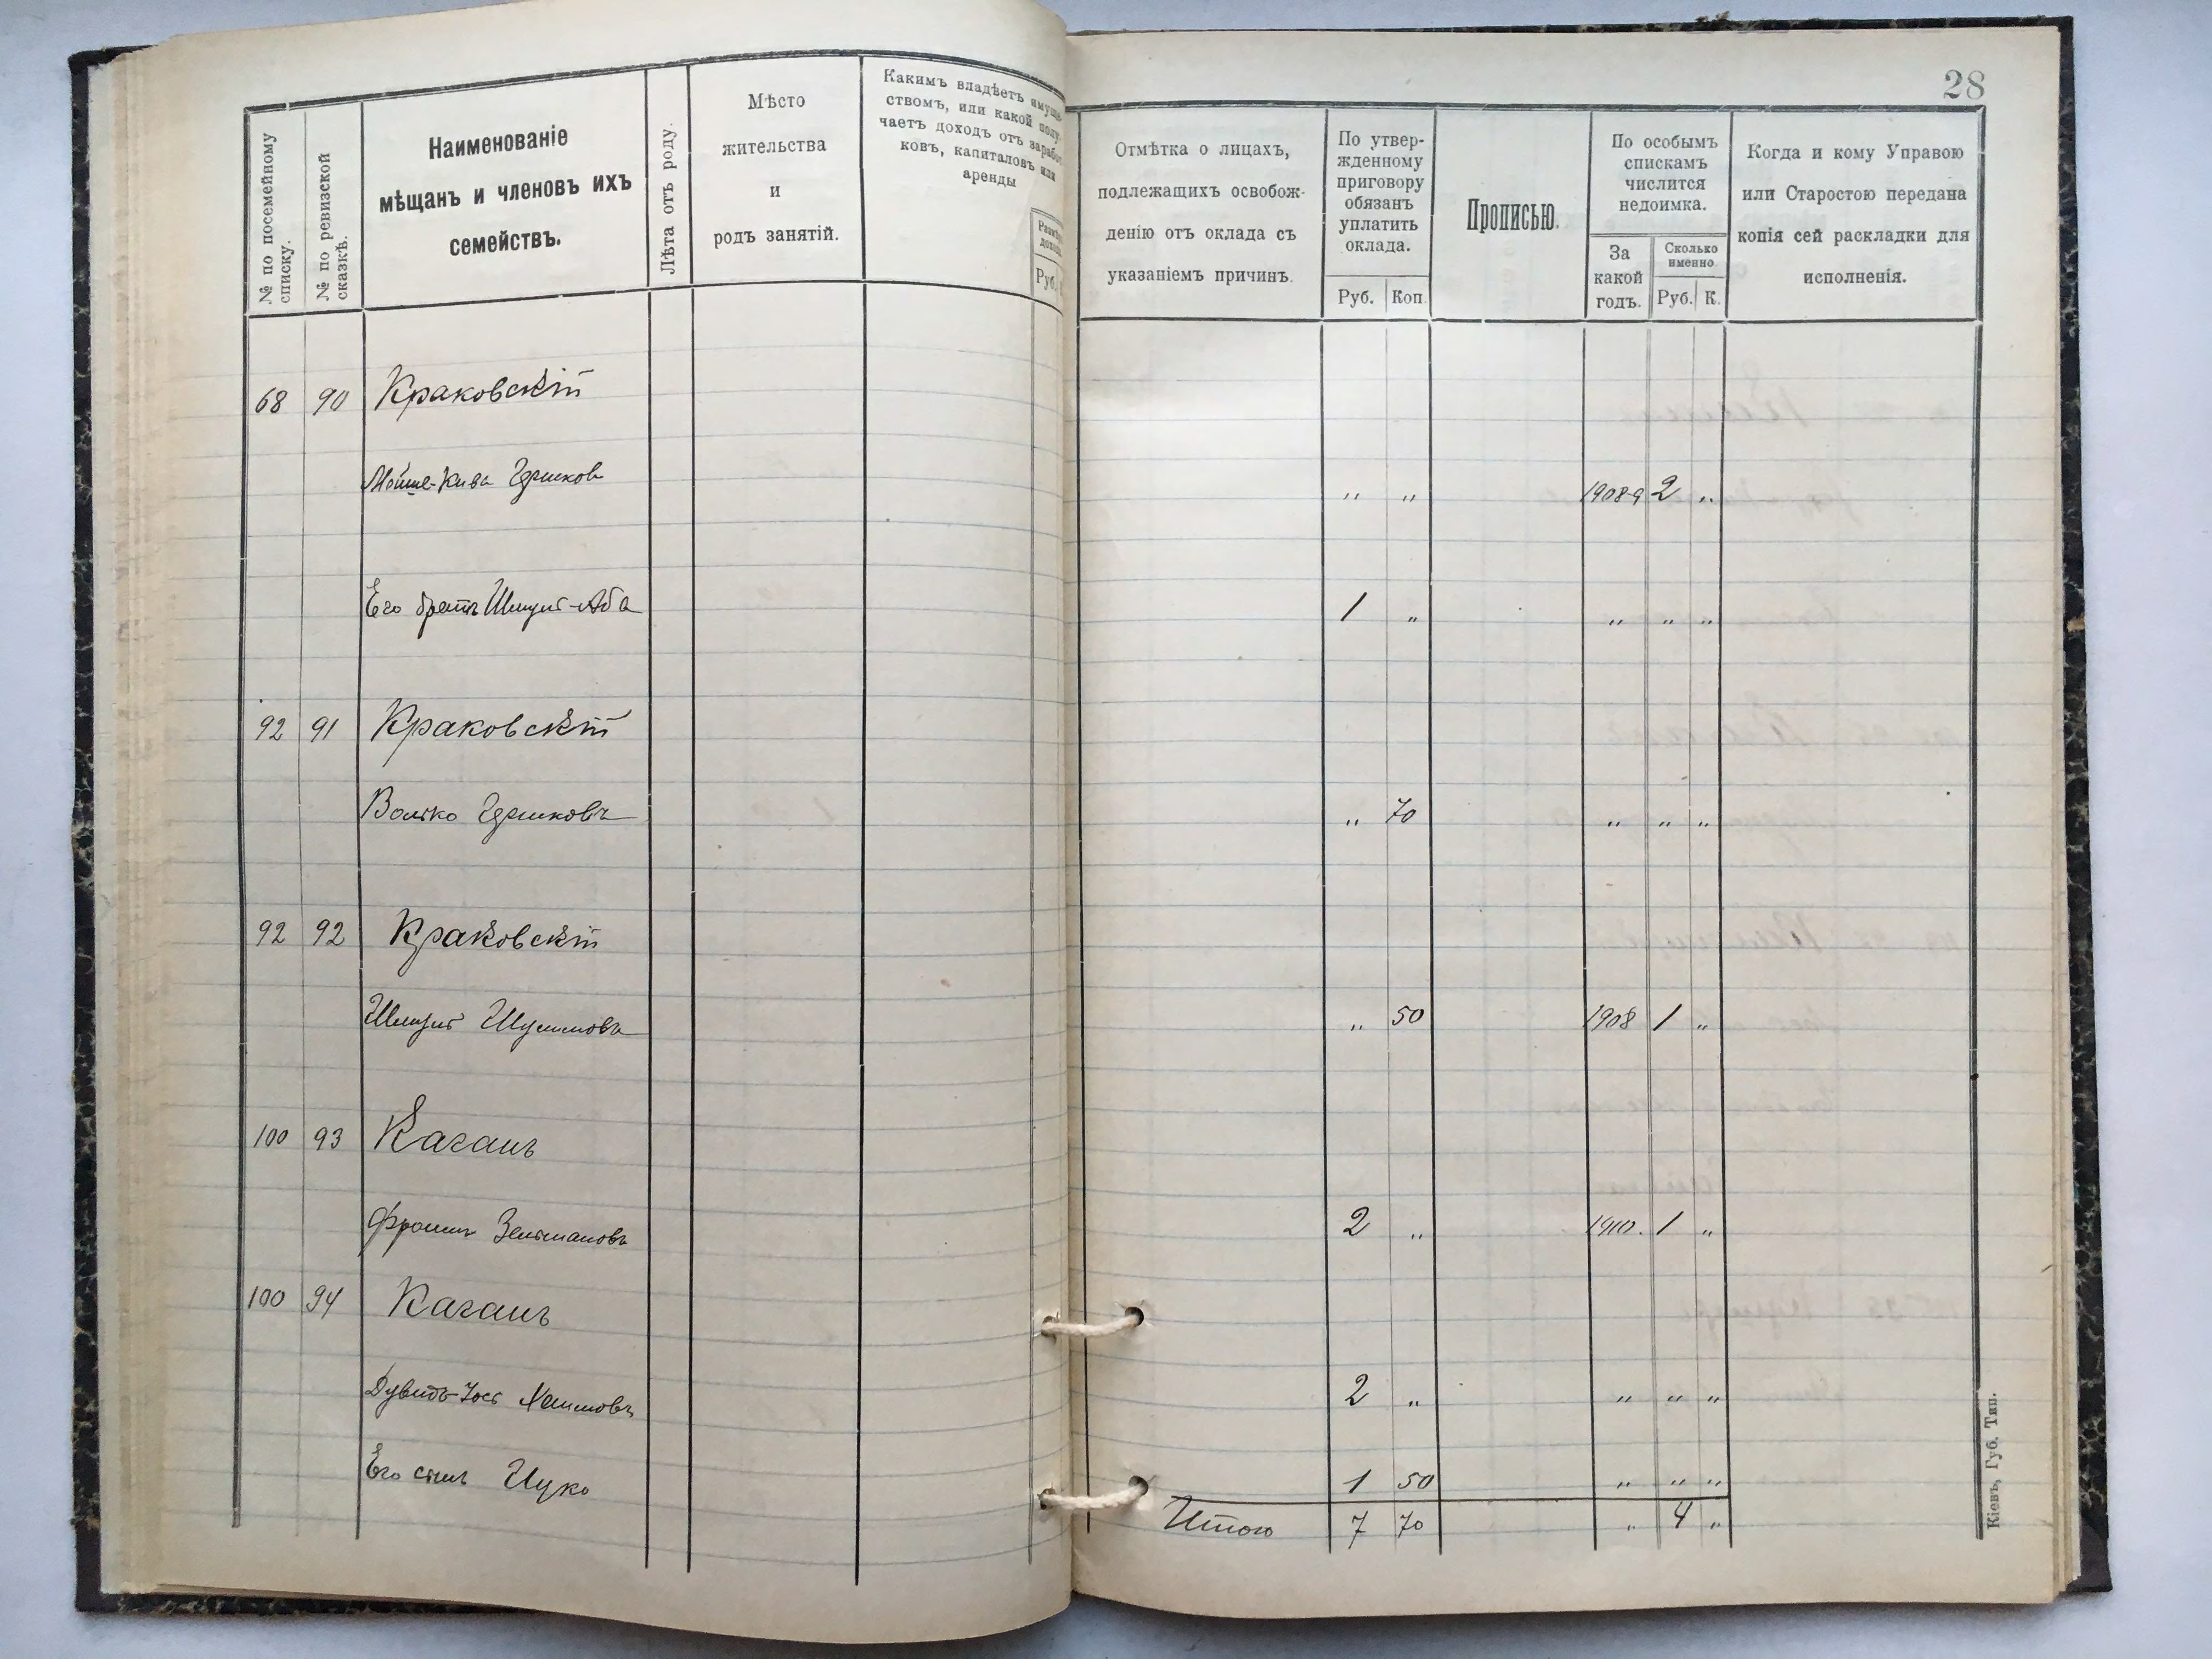 28
№ по посемейному
списку.
№ по ревизской
сказкѣ.
Наименованіе
мѣщанъ и членовъ ихъ
семействъ.
Лѣта отъ роду.
Мѣсто
жительства
и
родъ занятій.
Какимъ владѣетъ имуще-
ствомъ, или какой полу-
чаетъ доходъ отъ заработ
ковъ, капиталовъ или
аренды
Руб.
Отмѣтка о лицахъ,
подлежащихъ освобож-
денію отъ оклада съ
указаніемъ причинъ.
По утвер-
жденному
приговору
обязанъ
уплатить
оклада.
Руб. Коп.
Прописью.
По особымъ
спискамъ
числится
недоимка.
За
какой
годъ.
Сколько
именно
Руб. К.
Когда и кому Управою
или Старостою передана
копія сей раскладки для
исполненія.
68 90 Краковскій
Мойше-Кива Гершков " " 1908-9 2 "
Его братъ Шмуль-Аба 1 " " " "
92 91 Краковскій
Волько Гершковъ " 70 " " "
92 92 Краковскій
Шмуль " 50 1908 1 "
100 93 Каганъ
Фроим Зельмановъ 2 " 1910. 1 "
100 94 Каганъ
Дувидъ-Іось Хаимовъ 2 " " " "
Его сынъ Ицко 1 50 " " "
Итого 7 70 " 4 "
Кіевъ, Губ. Тип.